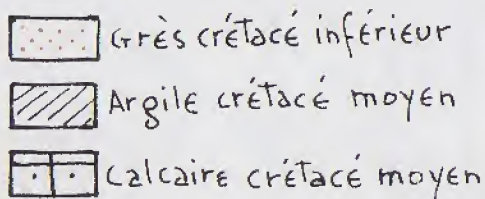 Grès crétacé inférieur
Argile crétacé moyen
Calcaire crétacé moyen